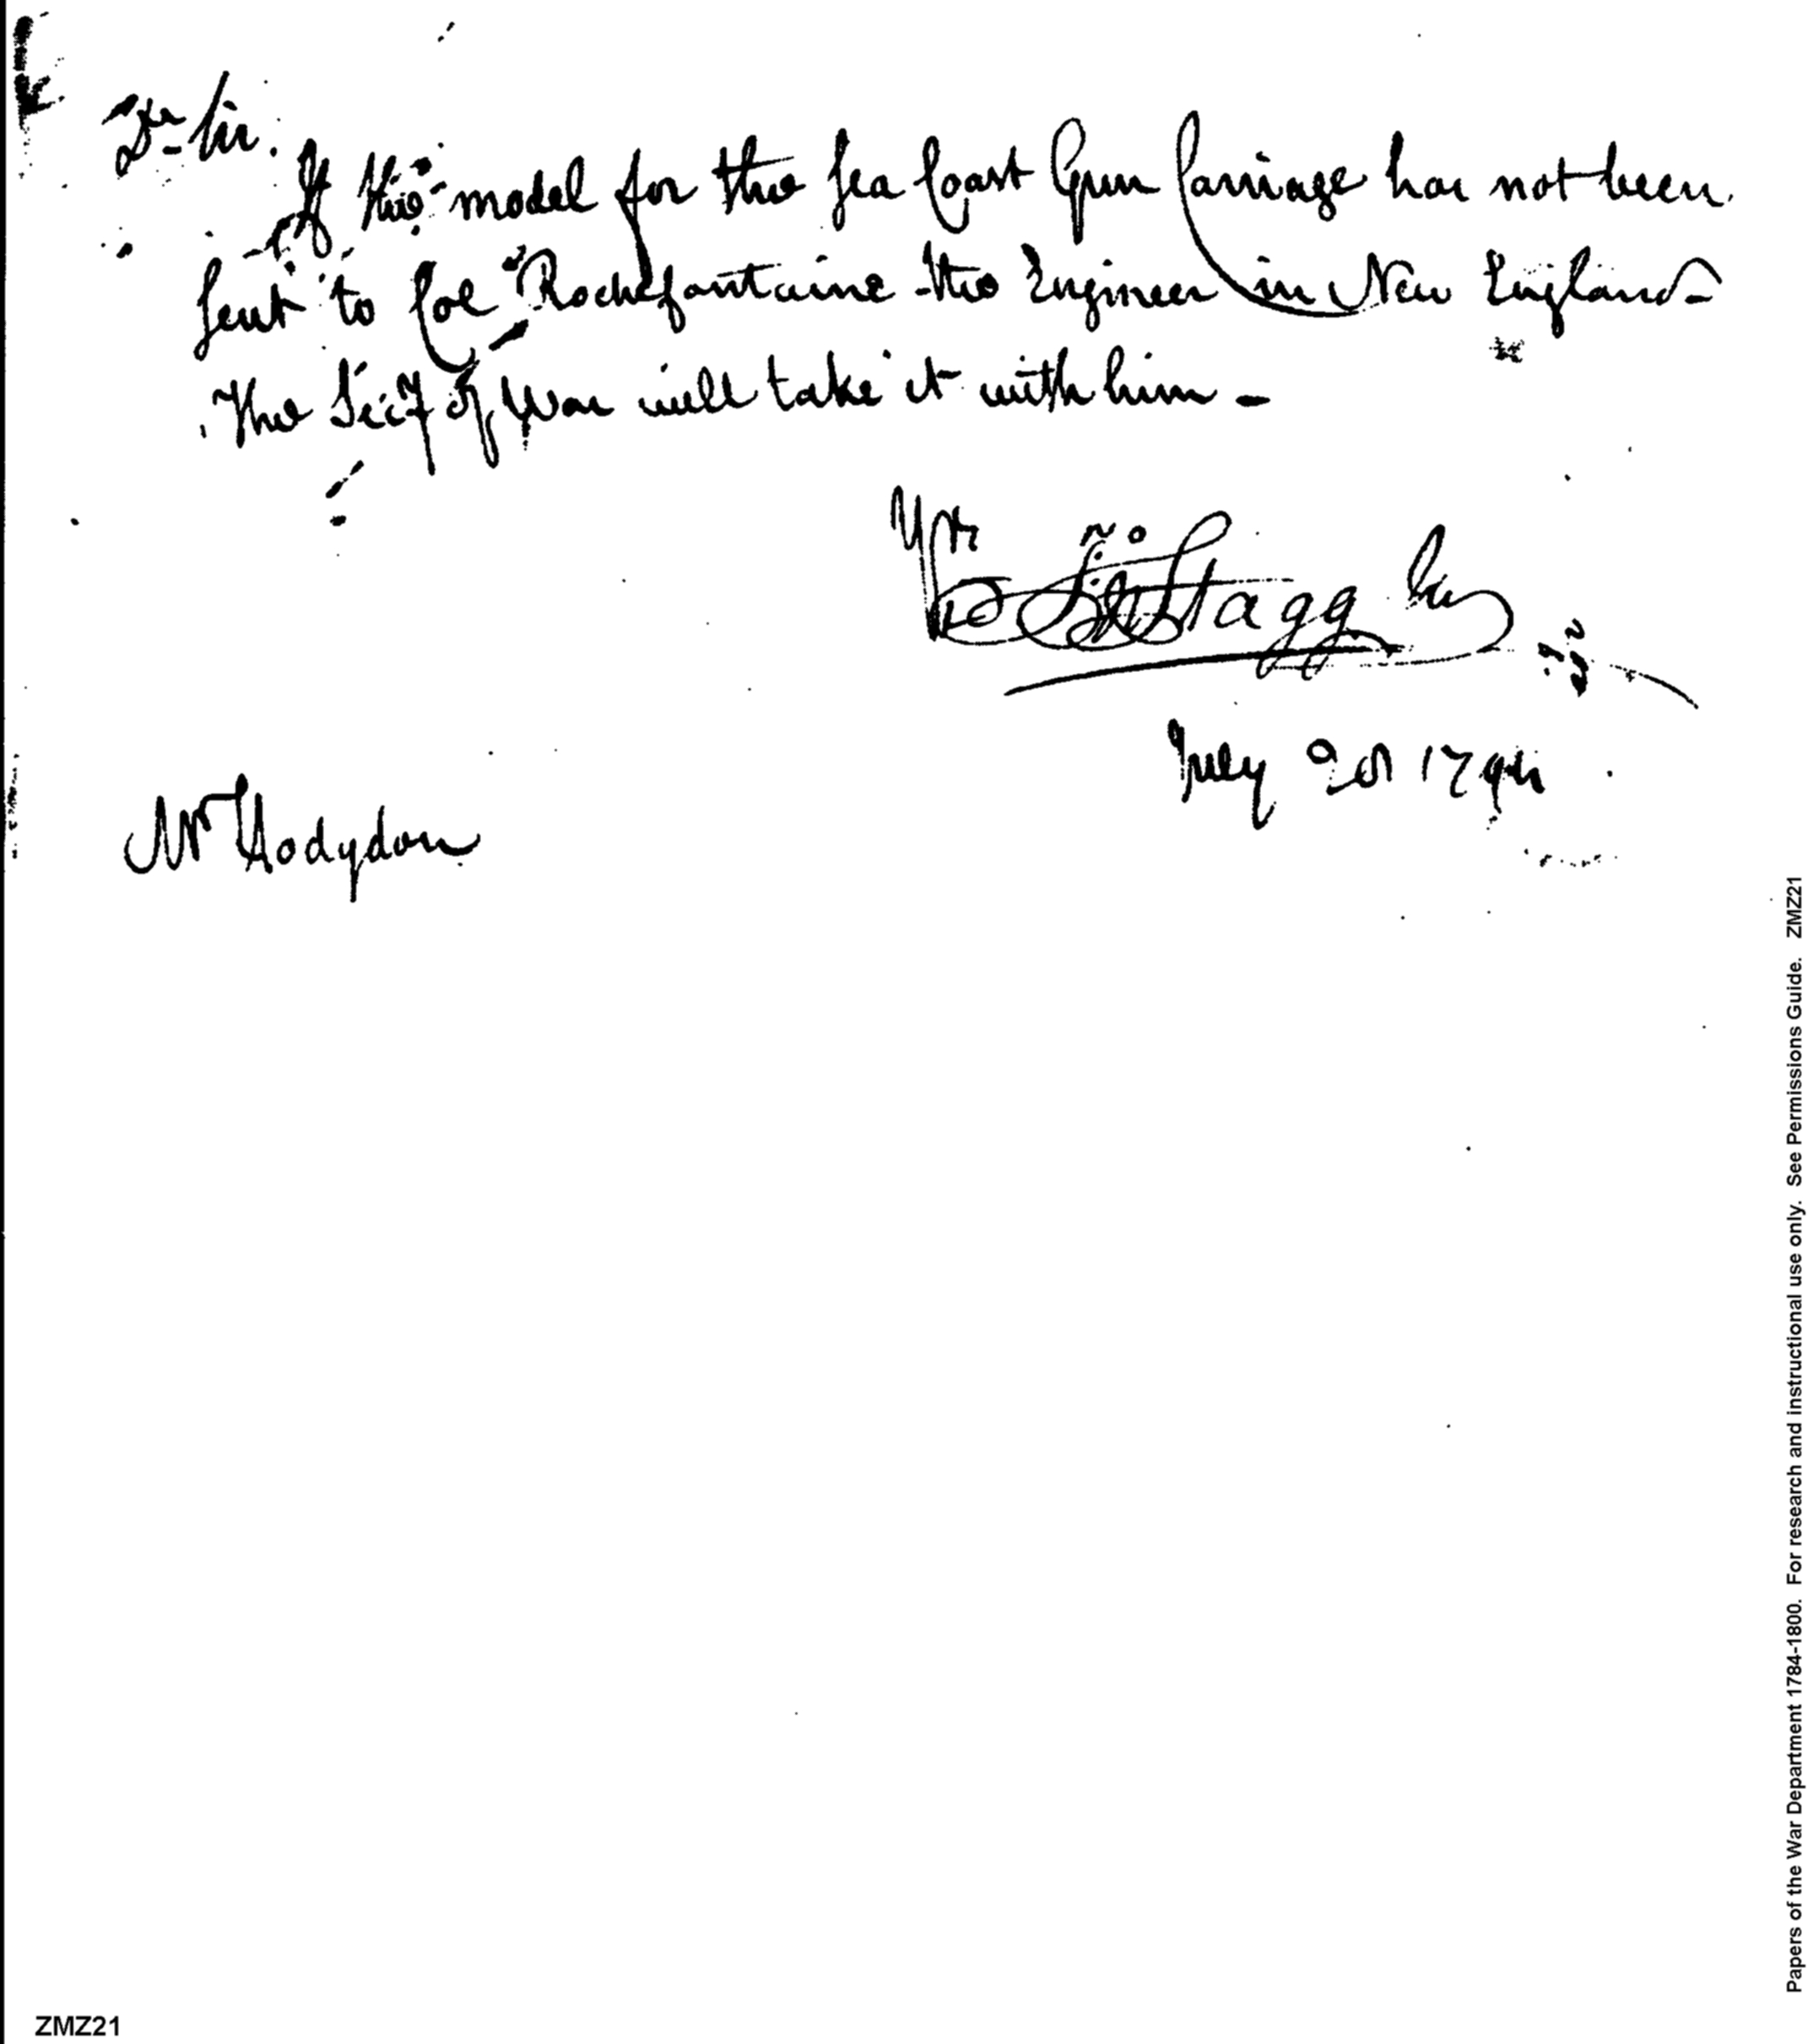 Dr Sir.
If the model for the Sea Coast Gun Carriage has not been
sent to Col Rochefontaine the Engineer in New England
The Secy of War will take it with him -
Yrs
Jn Stagg Jun
July 1794
Mr Hodgdon
Papers of the War Department 1784-1800. For research and instructional use only. See Permissions Guide. ZMZ21
ZMZ21